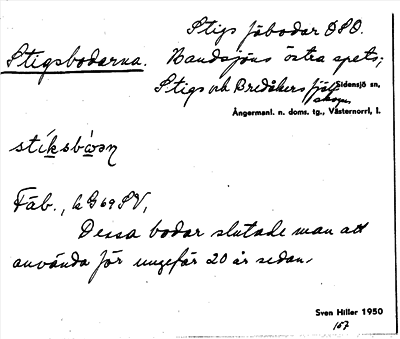 Stigs fäbodar OSO.
Stigsbodarna. Nandsjöns östra spets;
Stigs och Bredåkers fjäll-
skogen
Sidensjö sn,
Ångermanl. n. doms. tg., Västernorrl, l.
stíksbωəṇ
Fäb., k G 69 SV,
Dessa bodar slutade man att
använda för ungefär 20 år sedan.
Sven Hiller 1950
167